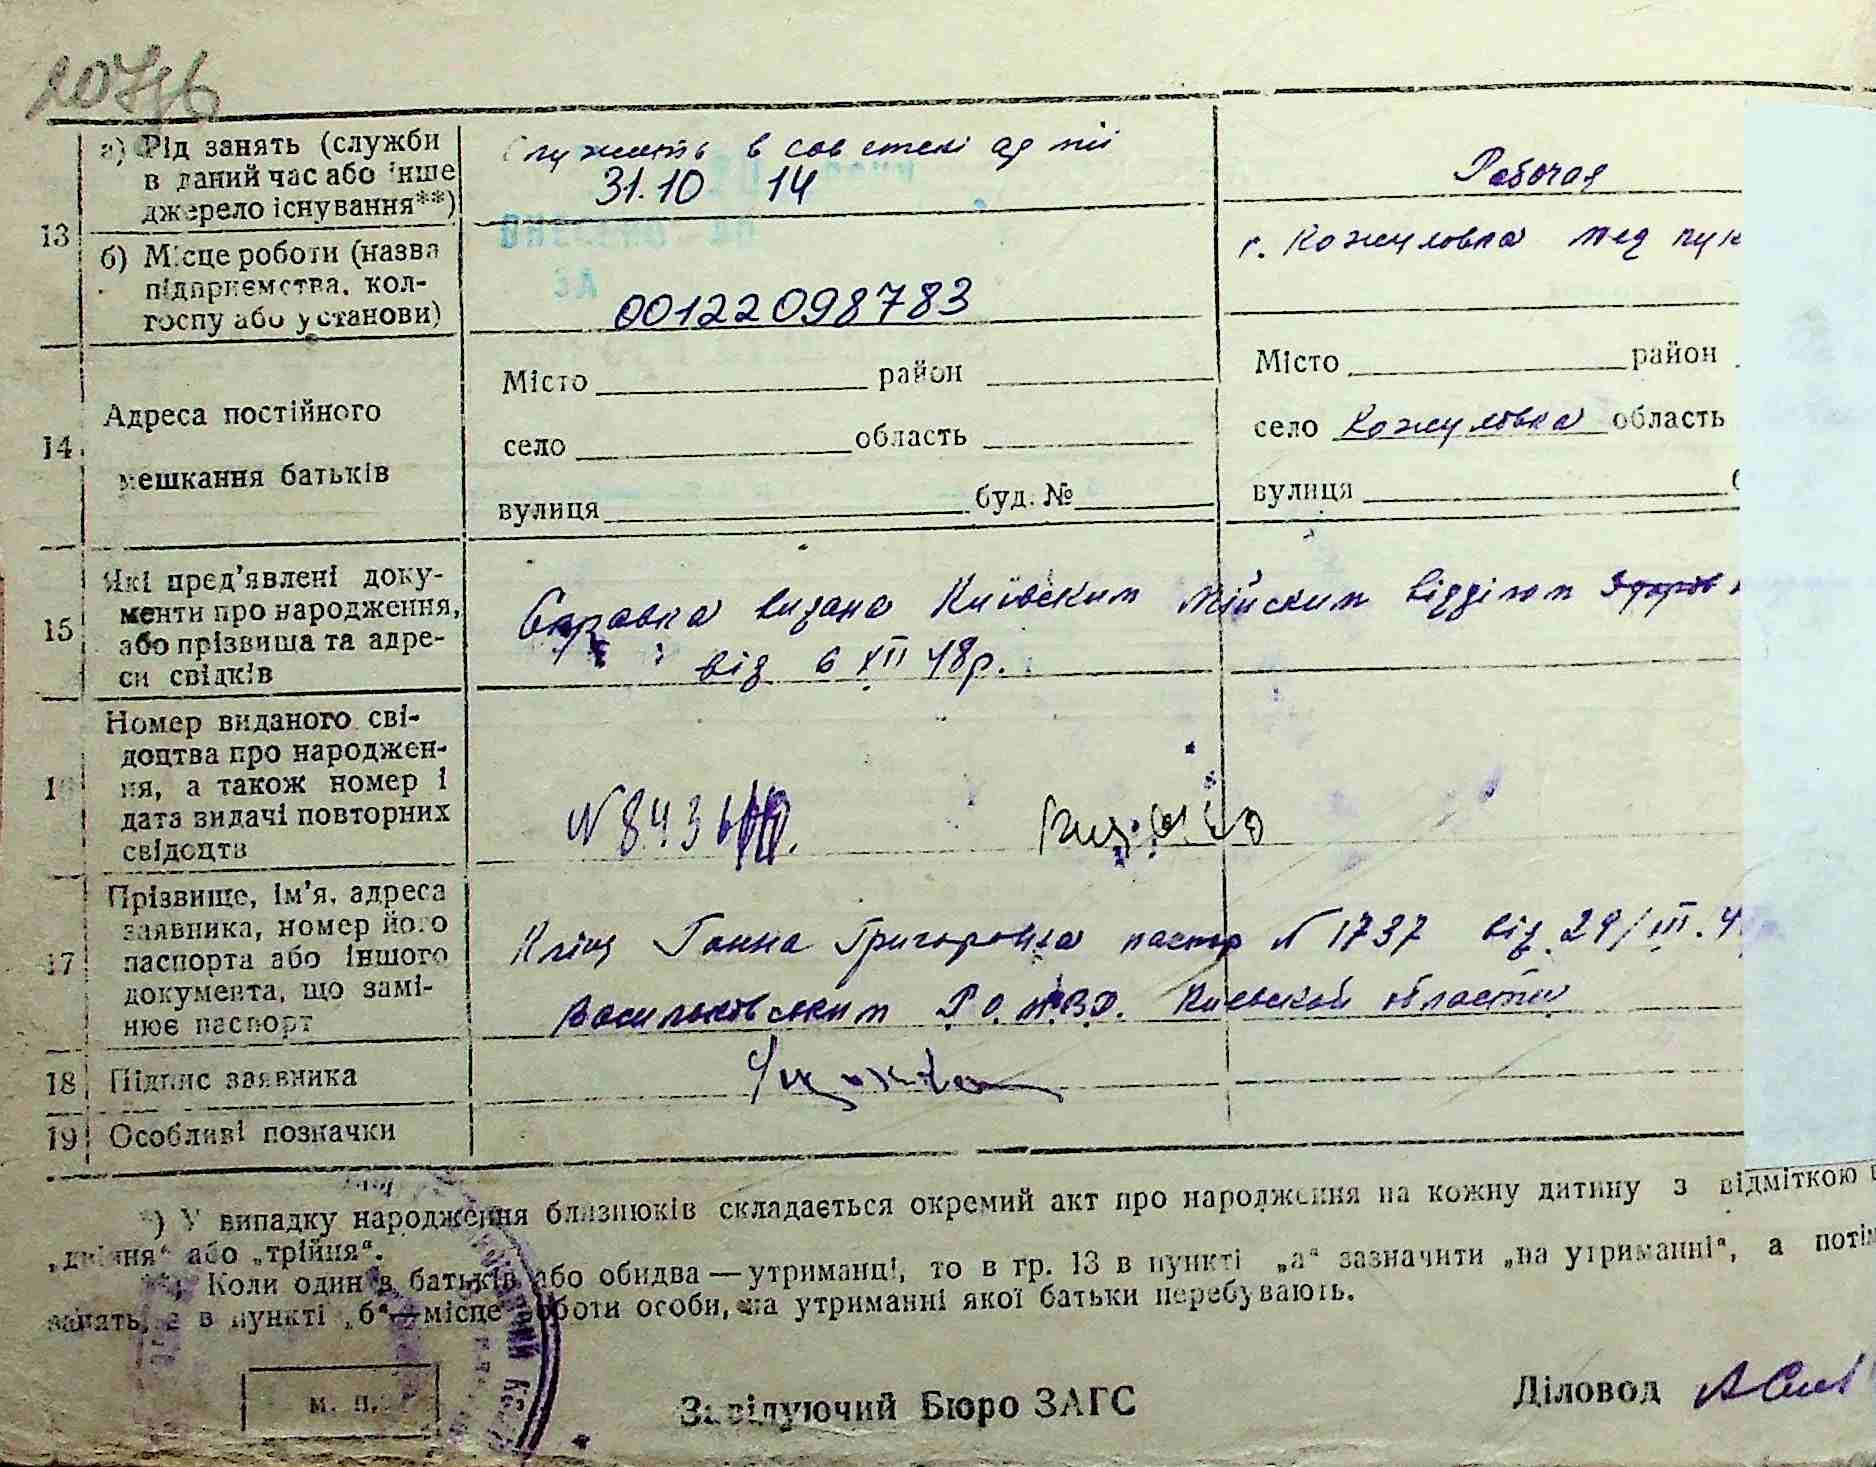 а) Рід занять (служби
в даний час або інше
джерело існування**)
Служить в советскі армії
31.10 14
Рабочая
13
б) Місце роботи (назва
підприємства, кол-
госпу або установи)
00122098783
с. Кожуховка мед пун
14
Адреса постійного
мешкання батьків
Місто район
село область
вулиця буд. №
Місто район
село Кожуховка область
вулиця
15
Які пред'явлені доку-
менти про народження,
або прізвища та адре-
си свідків
Справка видана Київским Мійским відділом
від 6 XII 48р.
16
Номер виданого сві-
доцтва про народжен-
ня, а також номер і
дата видачі повторних
свідоцтв
N 8436
17
Прізвище, ім'я, адреса
заявника, номер його
паспорта або іншого
документа, що замі-
нює паспорт
Ганна Григоровна паспор N 1737 від 29/III.4
Васильковським Р.О.М.В.Д. Киевской области
18 Підпис заявника
19 Особливі позначки
*) У випадку народження близнюків складається окремий акт про народження на кожну дитину з відміткою
„двійня“ або „трійня“.
**) Коли один з батьків або обидва—утриманці, то в гр. 13 в пункті „а“ зазначити „на утриманні“, а потім
занять, а в пункті „б“—місце роботи особи, на утриманні якої батьки перебувають.
м. п.
Завідуючий Бюро ЗАГС
Діловод